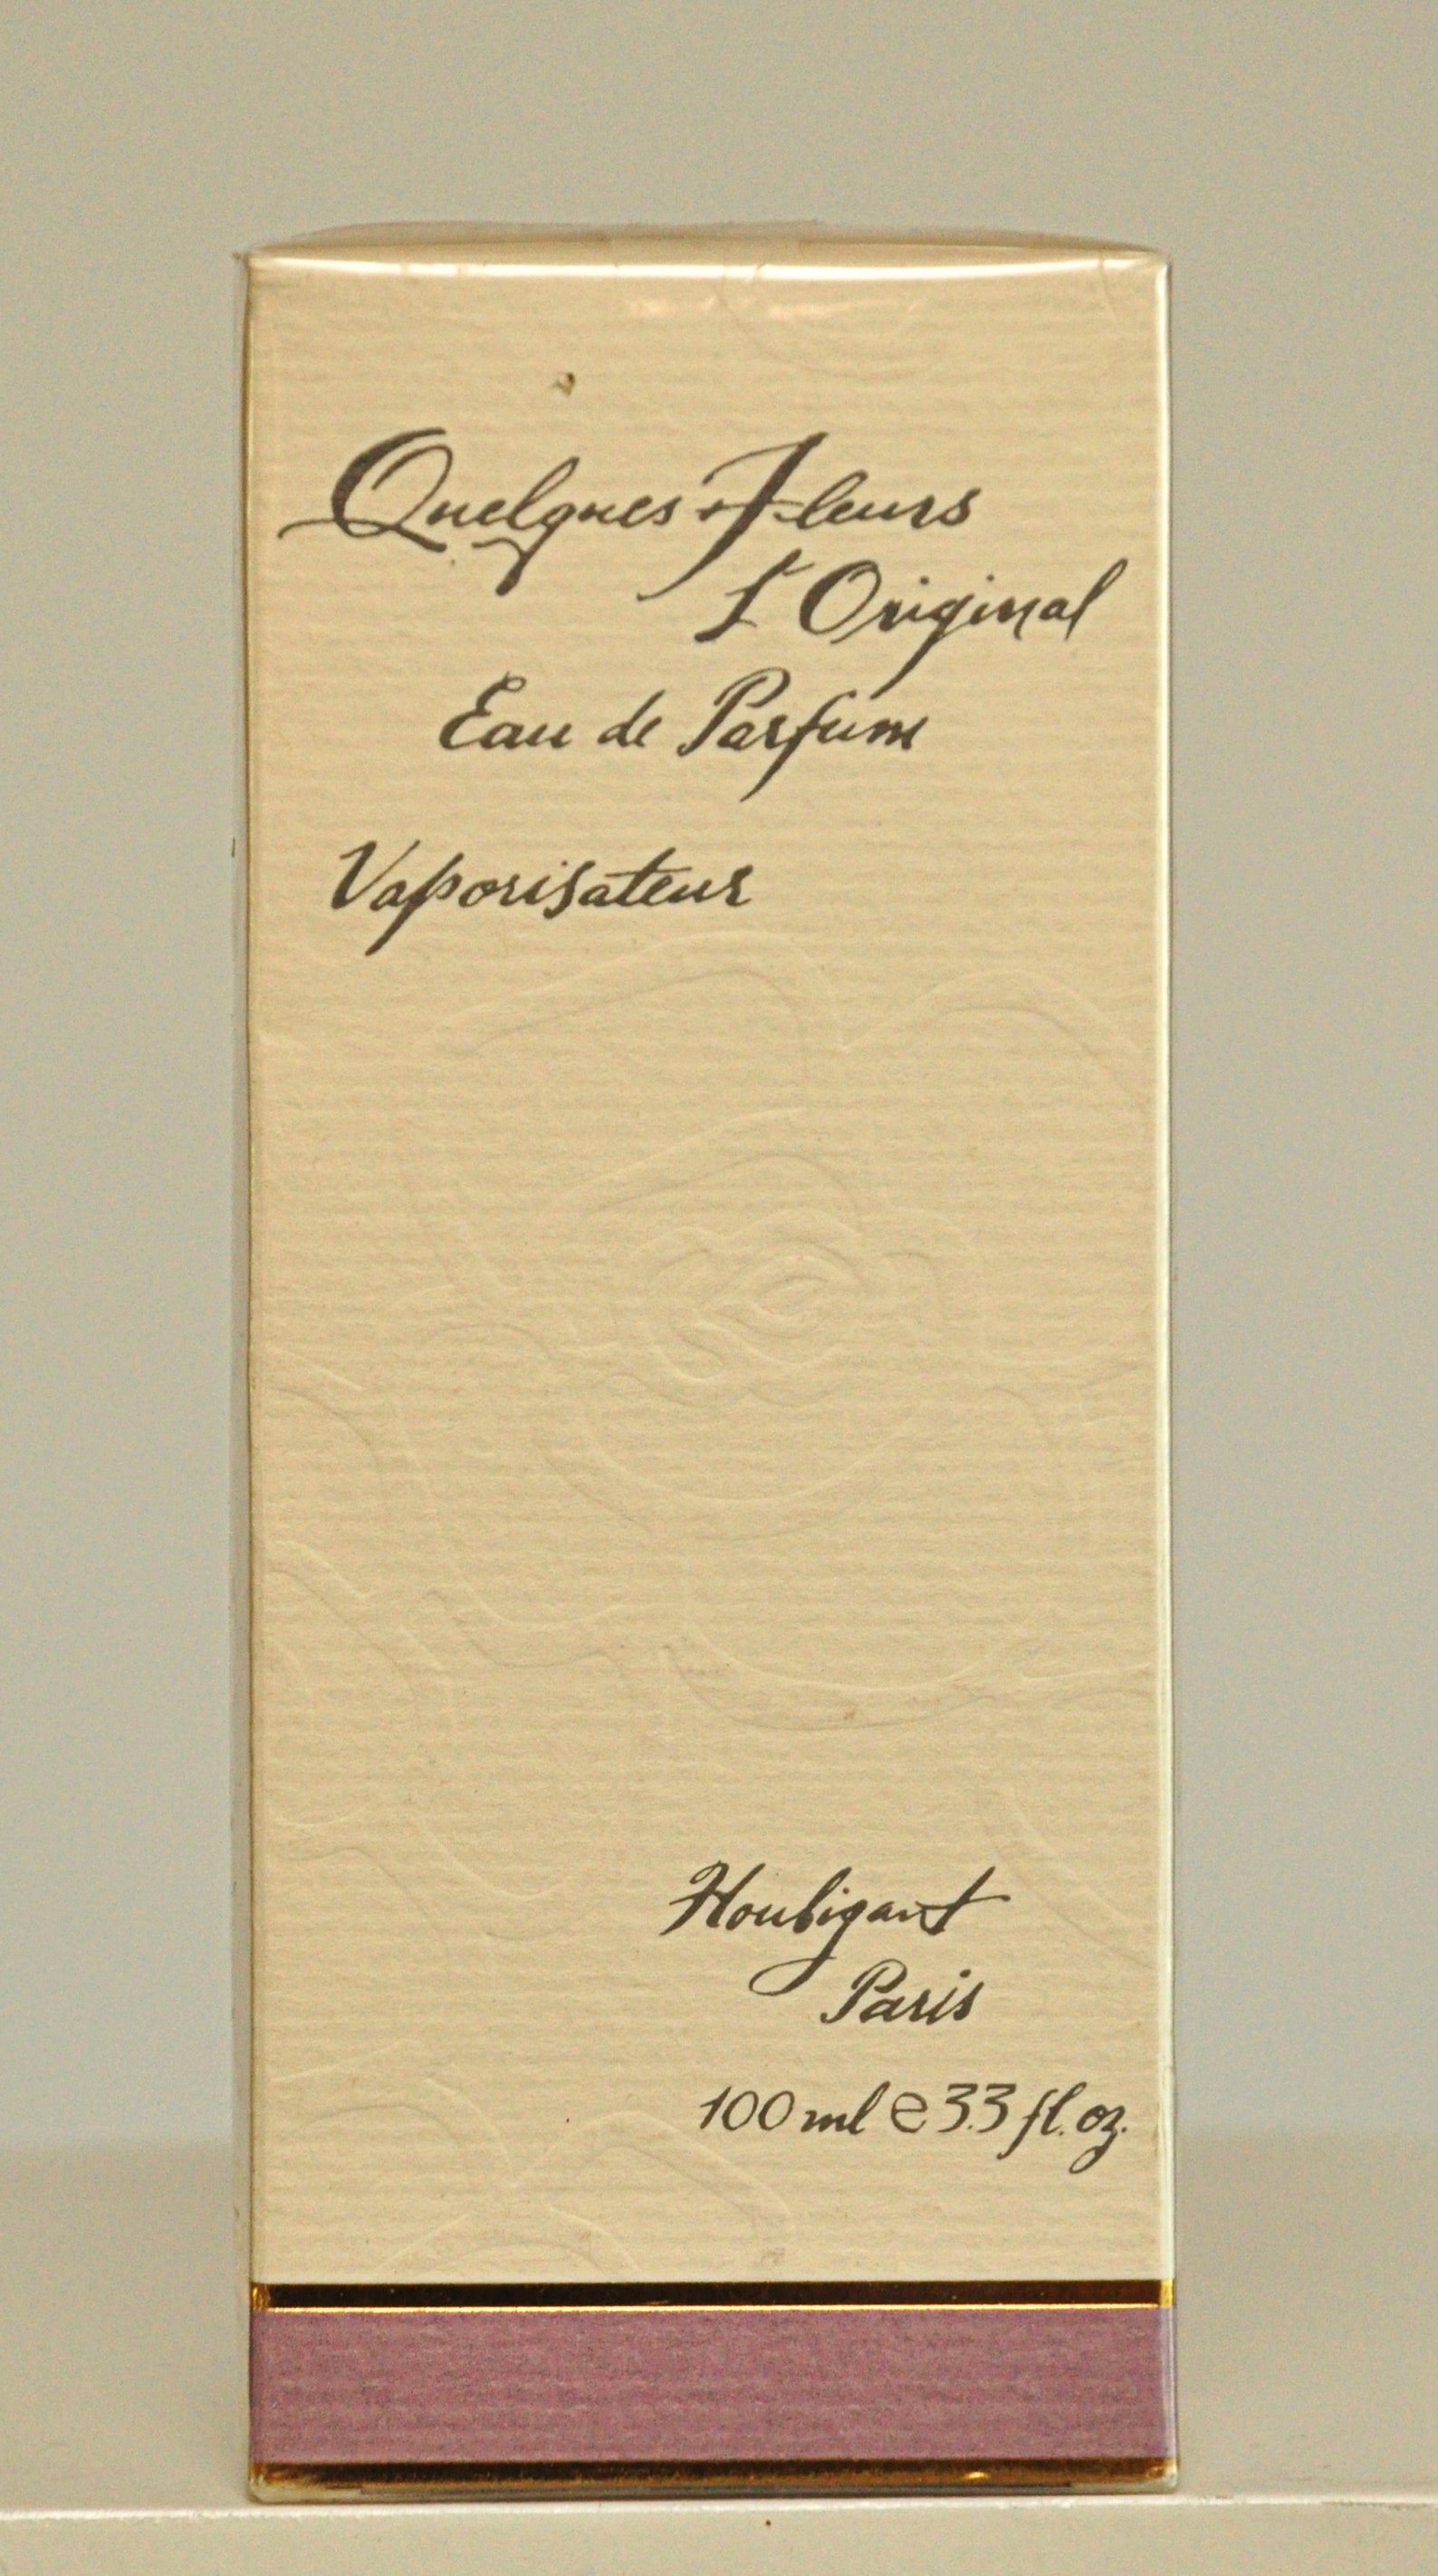 Quelques Fleurs
L'Original
Eau de Parfum
Vaporisateur
Houbigant
Paris
100 ml e 3.3 fl. oz.